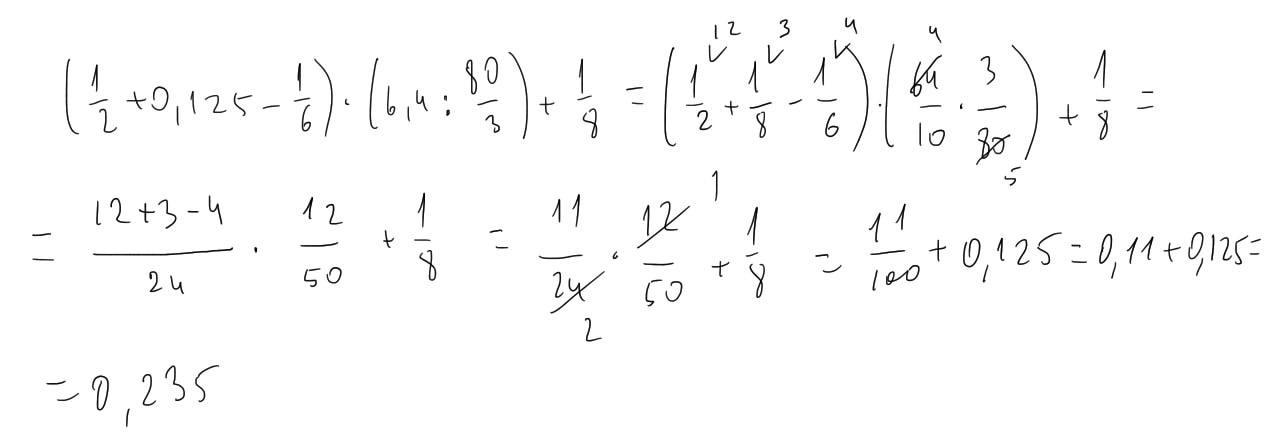 (1/2 + 0,125 - 1/6) · (6,4 : 80/3) + 1/8 = (1/2 + 1/8 - 1/6) · (64/10 · 3/80) + 1/8 =
= (12+3-4)/24 · 12/50 + 1/8 = 11/24 · 12/50 + 1/8 = 11/100 + 0,125 = 0,11 + 0,125 =
= 0,235